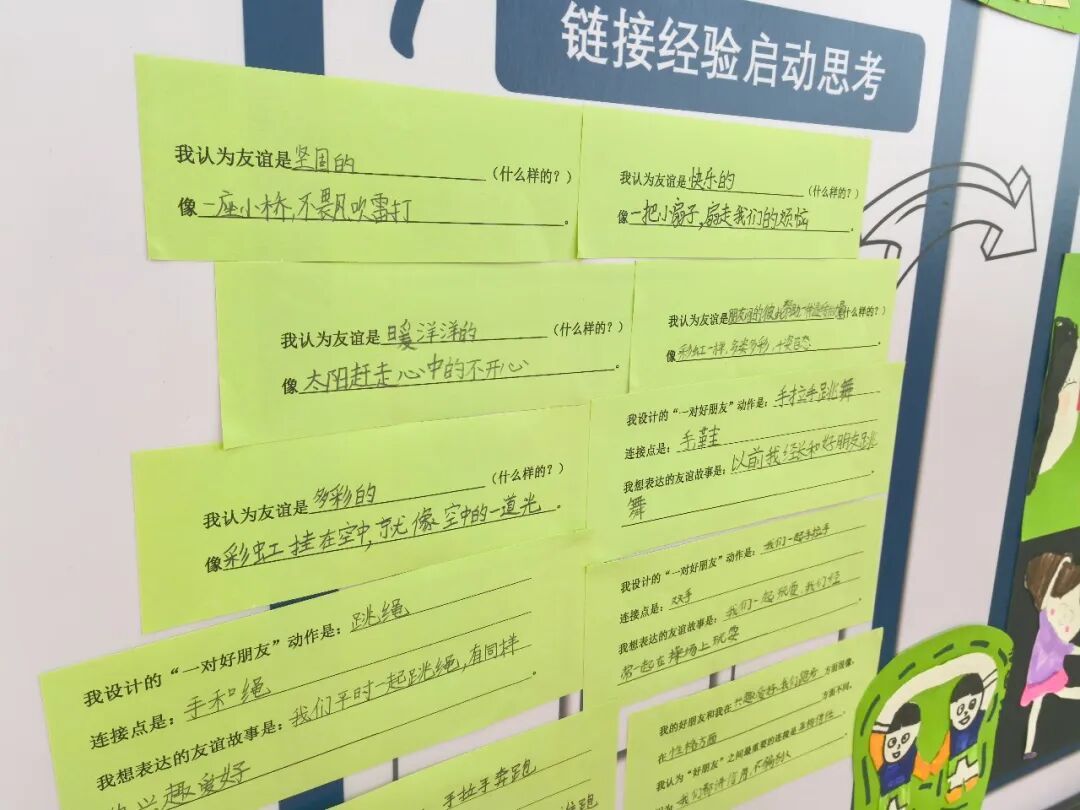 链接经验启动思考
我认为友谊是坚固的（什么样的？）
像一座小桥，不畏风吹雷打。
我认为友谊是快乐的（什么样的？）
像一把小扇子，扇走我们的烦恼。
我认为友谊是暖洋洋的（什么样的？）
像太阳赶走心中的不开心。
我认为友谊是
什么样的？）
像彩虹一样，多姿多彩，千姿百态。
我认为友谊是多彩的（什么样的？）
像彩虹挂在空中，就像空中的一道光。
我设计的“一对好朋友”动作是：手拉手跳舞
连接点是：
我想表达的友谊故事是：以前我经长和好朋友跳
舞。
我设计的“一对好朋友”动作是：跳绳
连接点是：手和绳
我想表达的友谊故事是：我们平时一起跳绳，有同样
兴趣爱好。
我设计的“一对好朋友”动作是：我们一起手拉手
连接点是：双手
我想表达的友谊故事是：我们一起玩耍，我们经
常一起在操场上玩耍。
手拉手奔跑
我的好朋友和我在兴趣爱好
方面很像，
在性格方面
方面不同。
我认为“好朋友”之间最重要的连接是